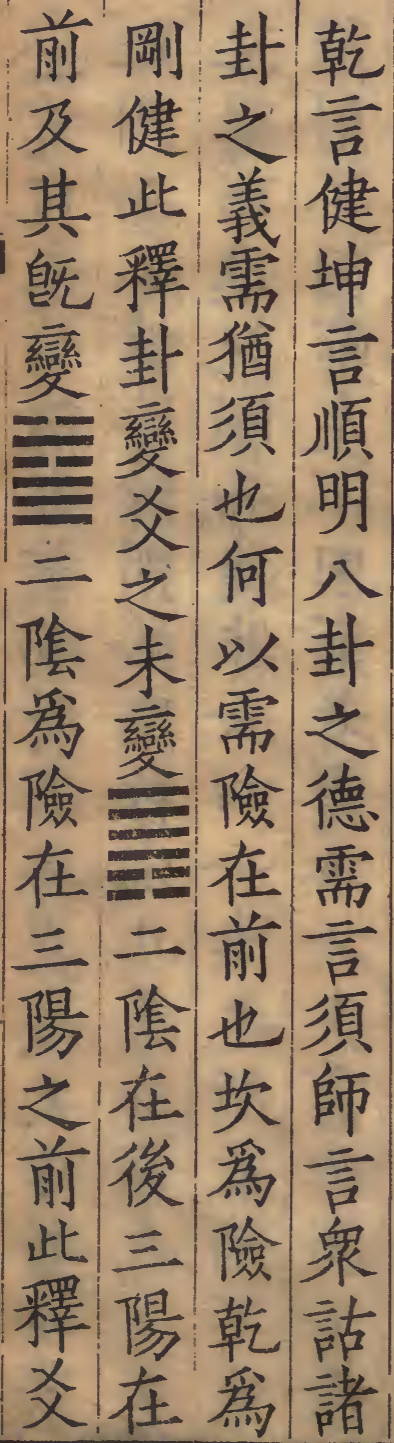 乾言健坤言順明八卦之德需言須師言衆詁諸
卦之義需猶須也何以需險在前也坎爲險乾爲
剛健此釋卦變爻之未變䷠二陰在後三陽在
前及其旣變䷄二陰爲險在三陽之前此釋爻